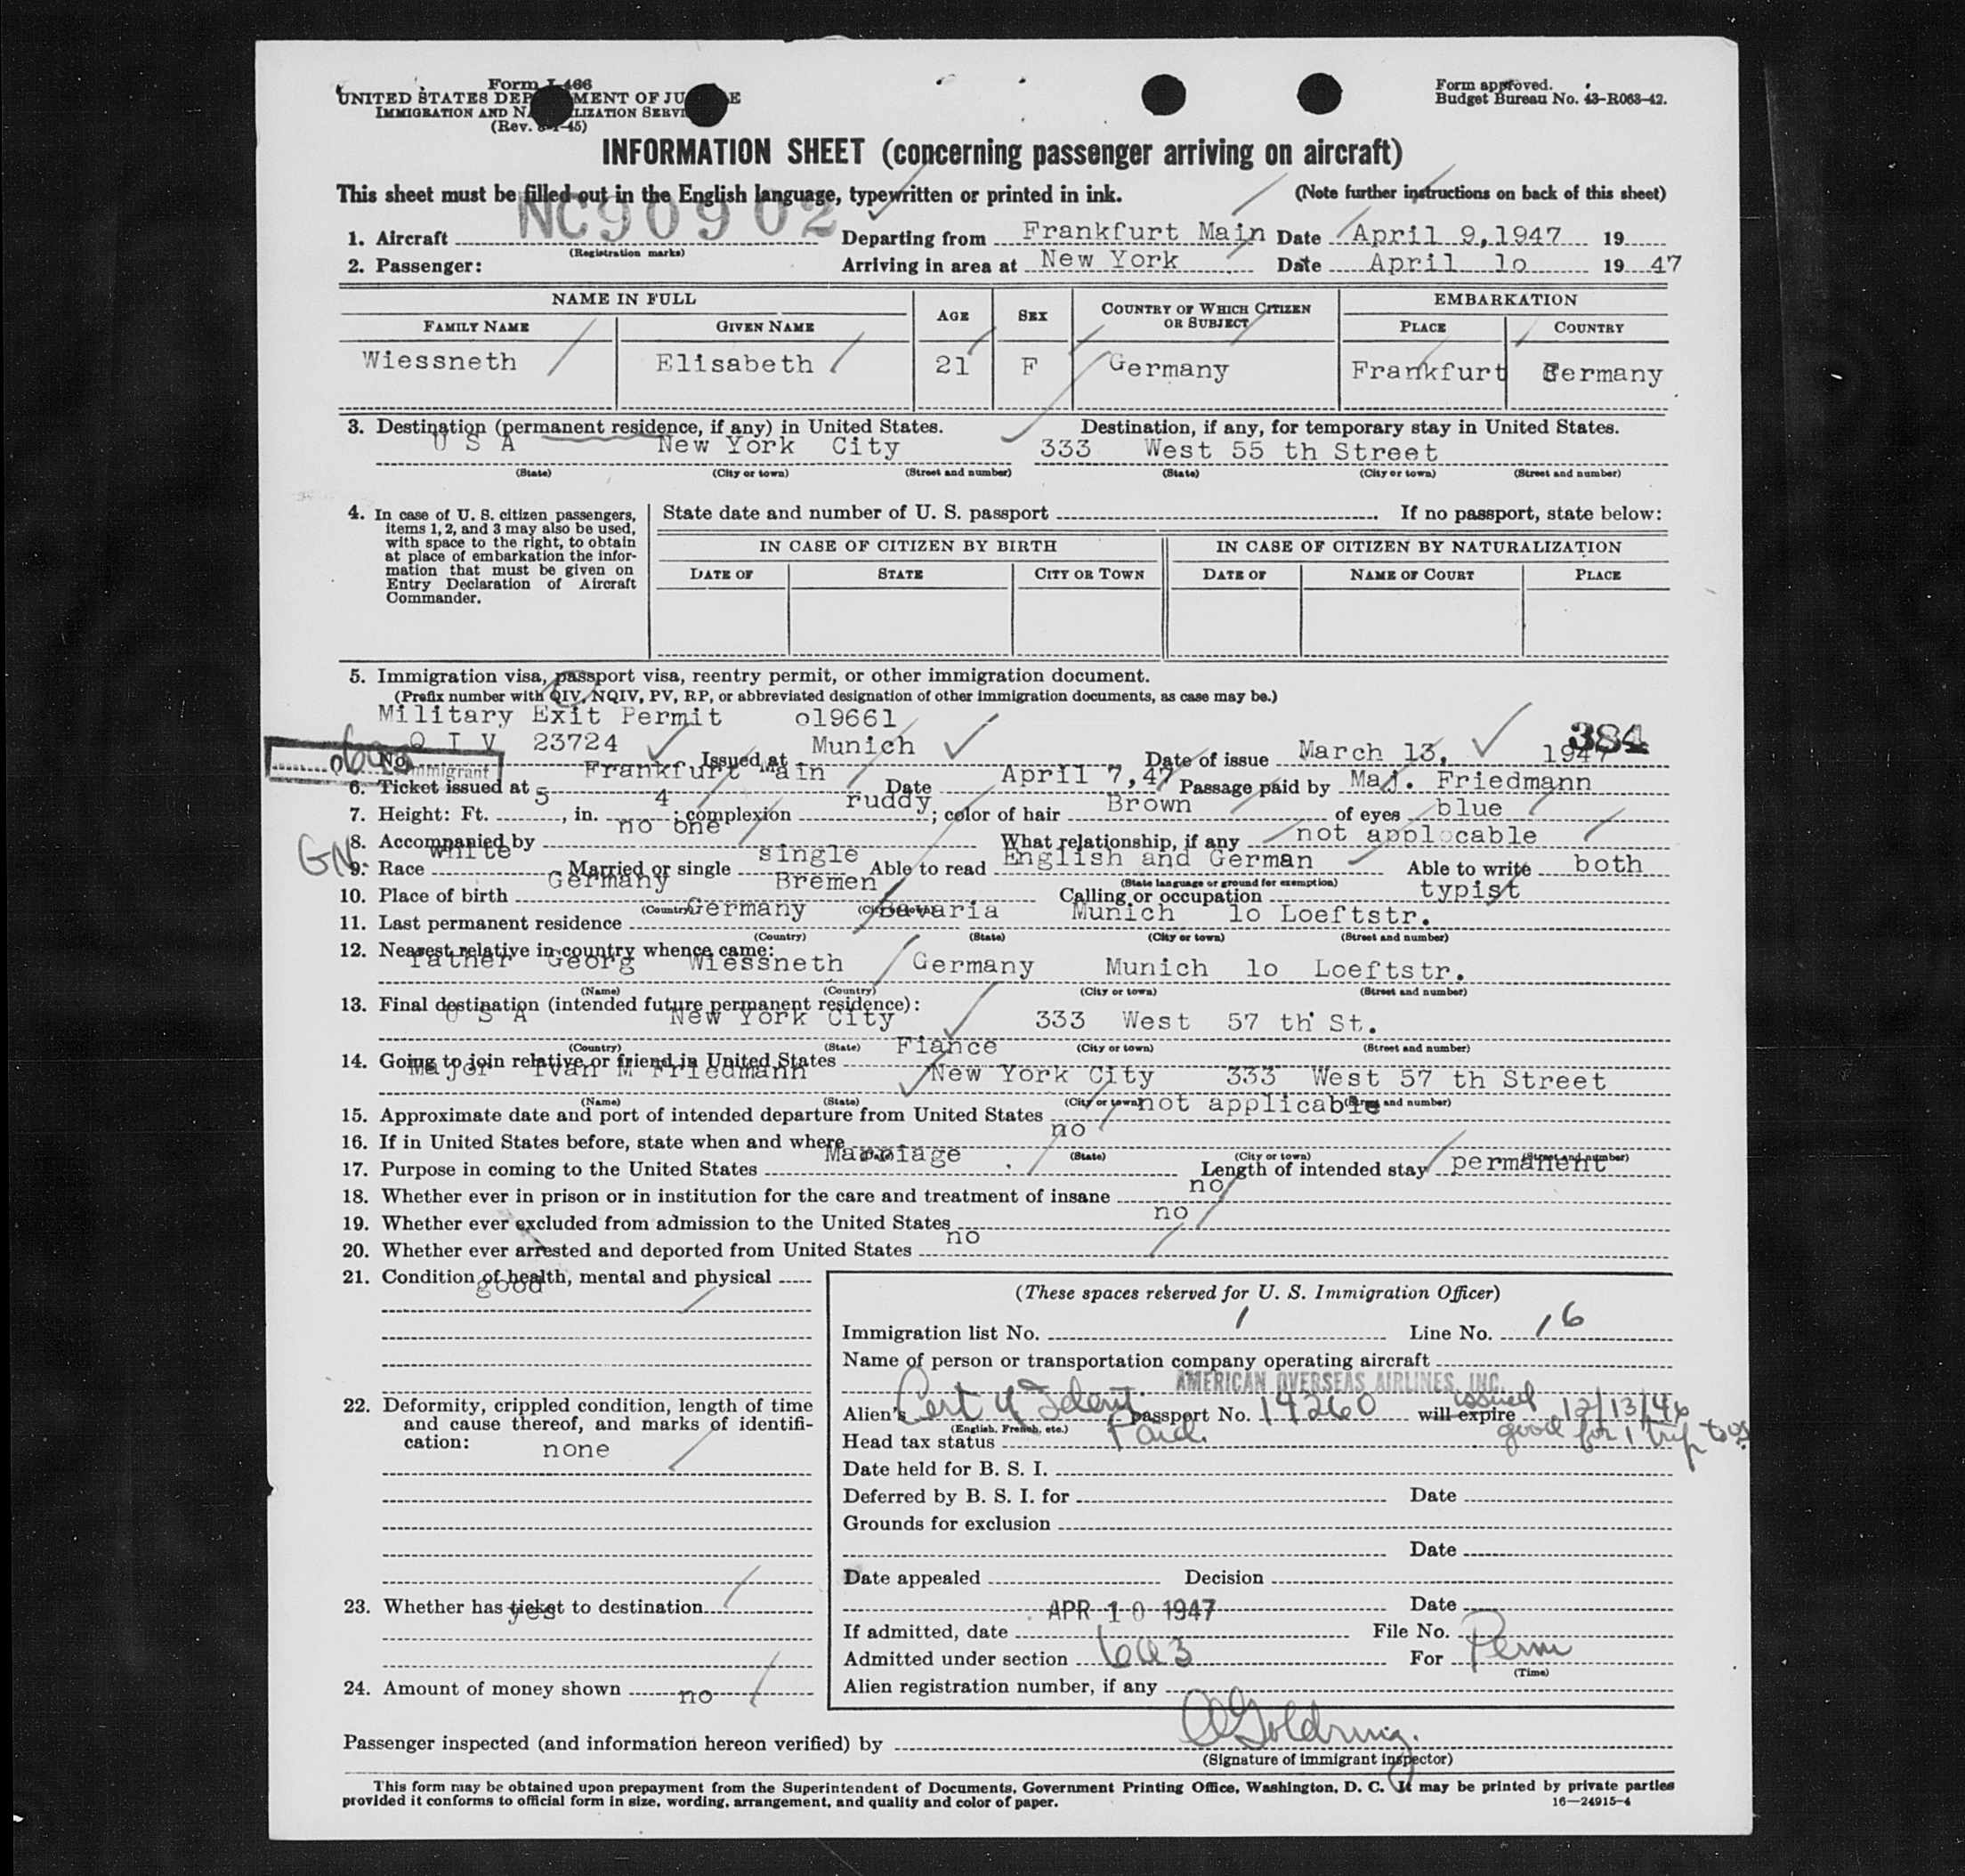 Form I-466
UNITED STATES DEPARTMENT OF JUSTICE
IMMIGRATION AND NATURALIZATION SERVICE
(Rev. -45)
Form approved.
Budget Bureau No. 43-R063-42.
INFORMATION SHEET (concerning passenger arriving on aircraft)
This sheet must be filled out in the English language, typewritten or printed in ink. (Note further instructions on back of this sheet)
1. Aircraft NC90902 Departing from Frankfurt Main Date April 9,1947 19
(Registration marks)
2. Passenger: Arriving in area at New York Date April 1o 19 47
NAME IN FULL AGE SEX COUNTRY OF WHICH CITIZEN OR SUBJECT EMBARKATION
FAMILY NAME GIVEN NAME PLACE COUNTRY
Wiessneth Elisabeth 21 F Germany Frankfurt Germany
3. Destination (permanent residence, if any) in United States. Destination, if any, for temporary stay in United States.
U S A New York City 333 West 55 th Street
(State) (City or town) (Street and number) (State) (City or town) (Street and number)
4. In case of U. S. citizen passengers, items 1, 2, and 3 may also be used, with space to the right, to obtain at place of embarkation the information that must be given on Entry Declaration of Aircraft Commander.
State date and number of U. S. passport If no passport, state below:
IN CASE OF CITIZEN BY BIRTH IN CASE OF CITIZEN BY NATURALIZATION
DATE OF STATE CITY OR TOWN DATE OF NAME OF COURT PLACE
5. Immigration visa, passport visa, reentry permit, or other immigration document.
(Prefix number with QIV, NQIV, PV, RP, or abbreviated designation of other immigration documents, as case may be.)
Military Exit Permit o19661
384
No. Q I V 23724 Issued at Munich Date of issue March 13, 1947
Immigrant
6. Ticket issued at Frankfurt Main Date April 7,47 Passage paid by Maj. Friedmann
7. Height: Ft. 5, in. 4; complexion ruddy; color of hair Brown of eyes blue
8. Accompanied by no one What relationship, if any not applocable
GN
9. Race white Married or single single Able to read English and German Able to write both
(State language or ground for exemption)
10. Place of birth Germany Bremen Calling or occupation typist
(Country) (City or town)
11. Last permanent residence Germany Bavaria Munich 1o Loeftstr.
(Country) (State) (City or town) (Street and number)
12. Nearest relative in country whence came:
father Georg Wiessneth Germany Munich 1o Loeftstr.
(Name) (Country) (City or town) (Street and number)
13. Final destination (intended future permanent residence):
U S A New York City 333 West 57 th St.
(Country) (State) (City or town) (Street and number)
14. Going to join relative or friend in United States Fiance
Major Ivan M Friedmann New York City 333 West 57 th Street
(Name) (State) (City or town) (Street and number)
15. Approximate date and port of intended departure from United States not applicable
16. If in United States before, state when and where no
(Date) (State) (City or town) (Street and number)
17. Purpose in coming to the United States Marriage Length of intended stay permanent
18. Whether ever in prison or in institution for the care and treatment of insane no
19. Whether ever excluded from admission to the United States no
20. Whether ever arrested and deported from United States no
21. Condition of health, mental and physical
good
22. Deformity, crippled condition, length of time and cause thereof, and marks of identification:
none
23. Whether has ticket to destination
yes
24. Amount of money shown no
(These spaces reserved for U. S. Immigration Officer)
Immigration list No. 1 Line No. 16
Name of person or transportation company operating aircraft
AMERICAN OVERSEAS AIRLINES, INC.
Alien's Cert of Ident. passport No. 14260 will expire issued 12/13/46
(English, French, etc.) good for 1 trip to US
Head tax status Paid.
Date held for B. S. I.
Deferred by B. S. I. for Date
Grounds for exclusion
Date
Date appealed Decision
Date
If admitted, date APR 10 1947 File No.
Admitted under section 6a3 For Perm
(Time)
Alien registration number, if any
Passenger inspected (and information hereon verified) by Goldring.
(Signature of immigrant inspector)
This form may be obtained upon prepayment from the Superintendent of Documents, Government Printing Office, Washington, D. C. It may be printed by private parties
provided it conforms to official form in size, wording, arrangement, and quality and color of paper.
16—24915-4